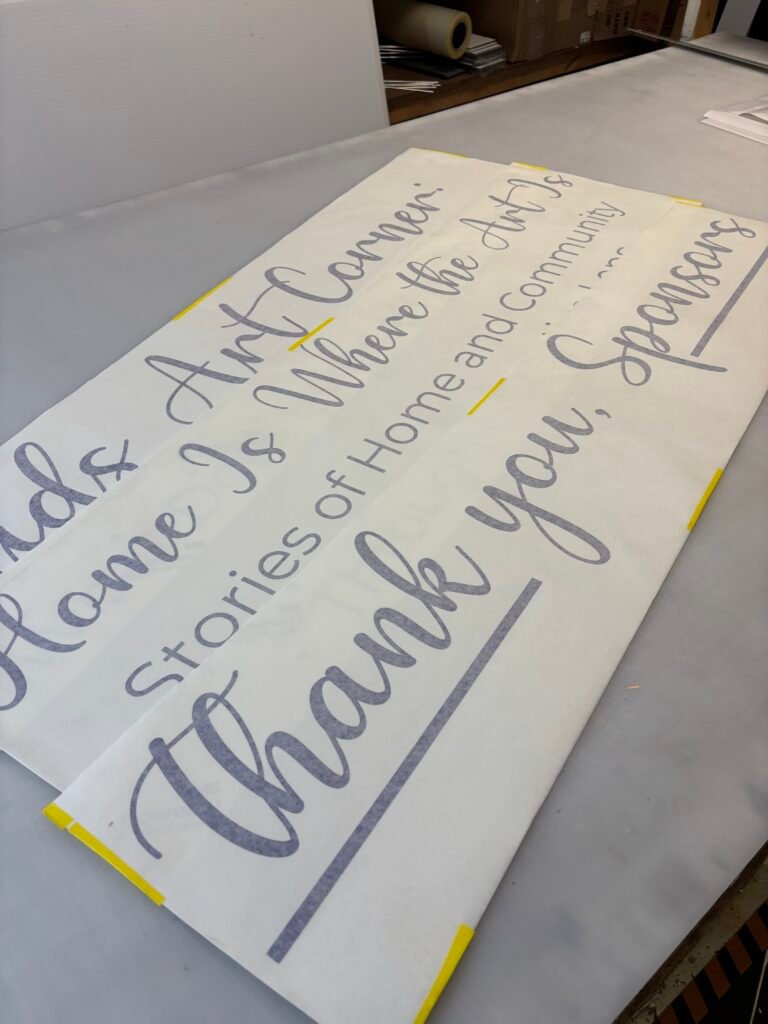 Art Corner:
Home Is Where the Art Is
Stories of Home and Community
Thank you, Sponsors